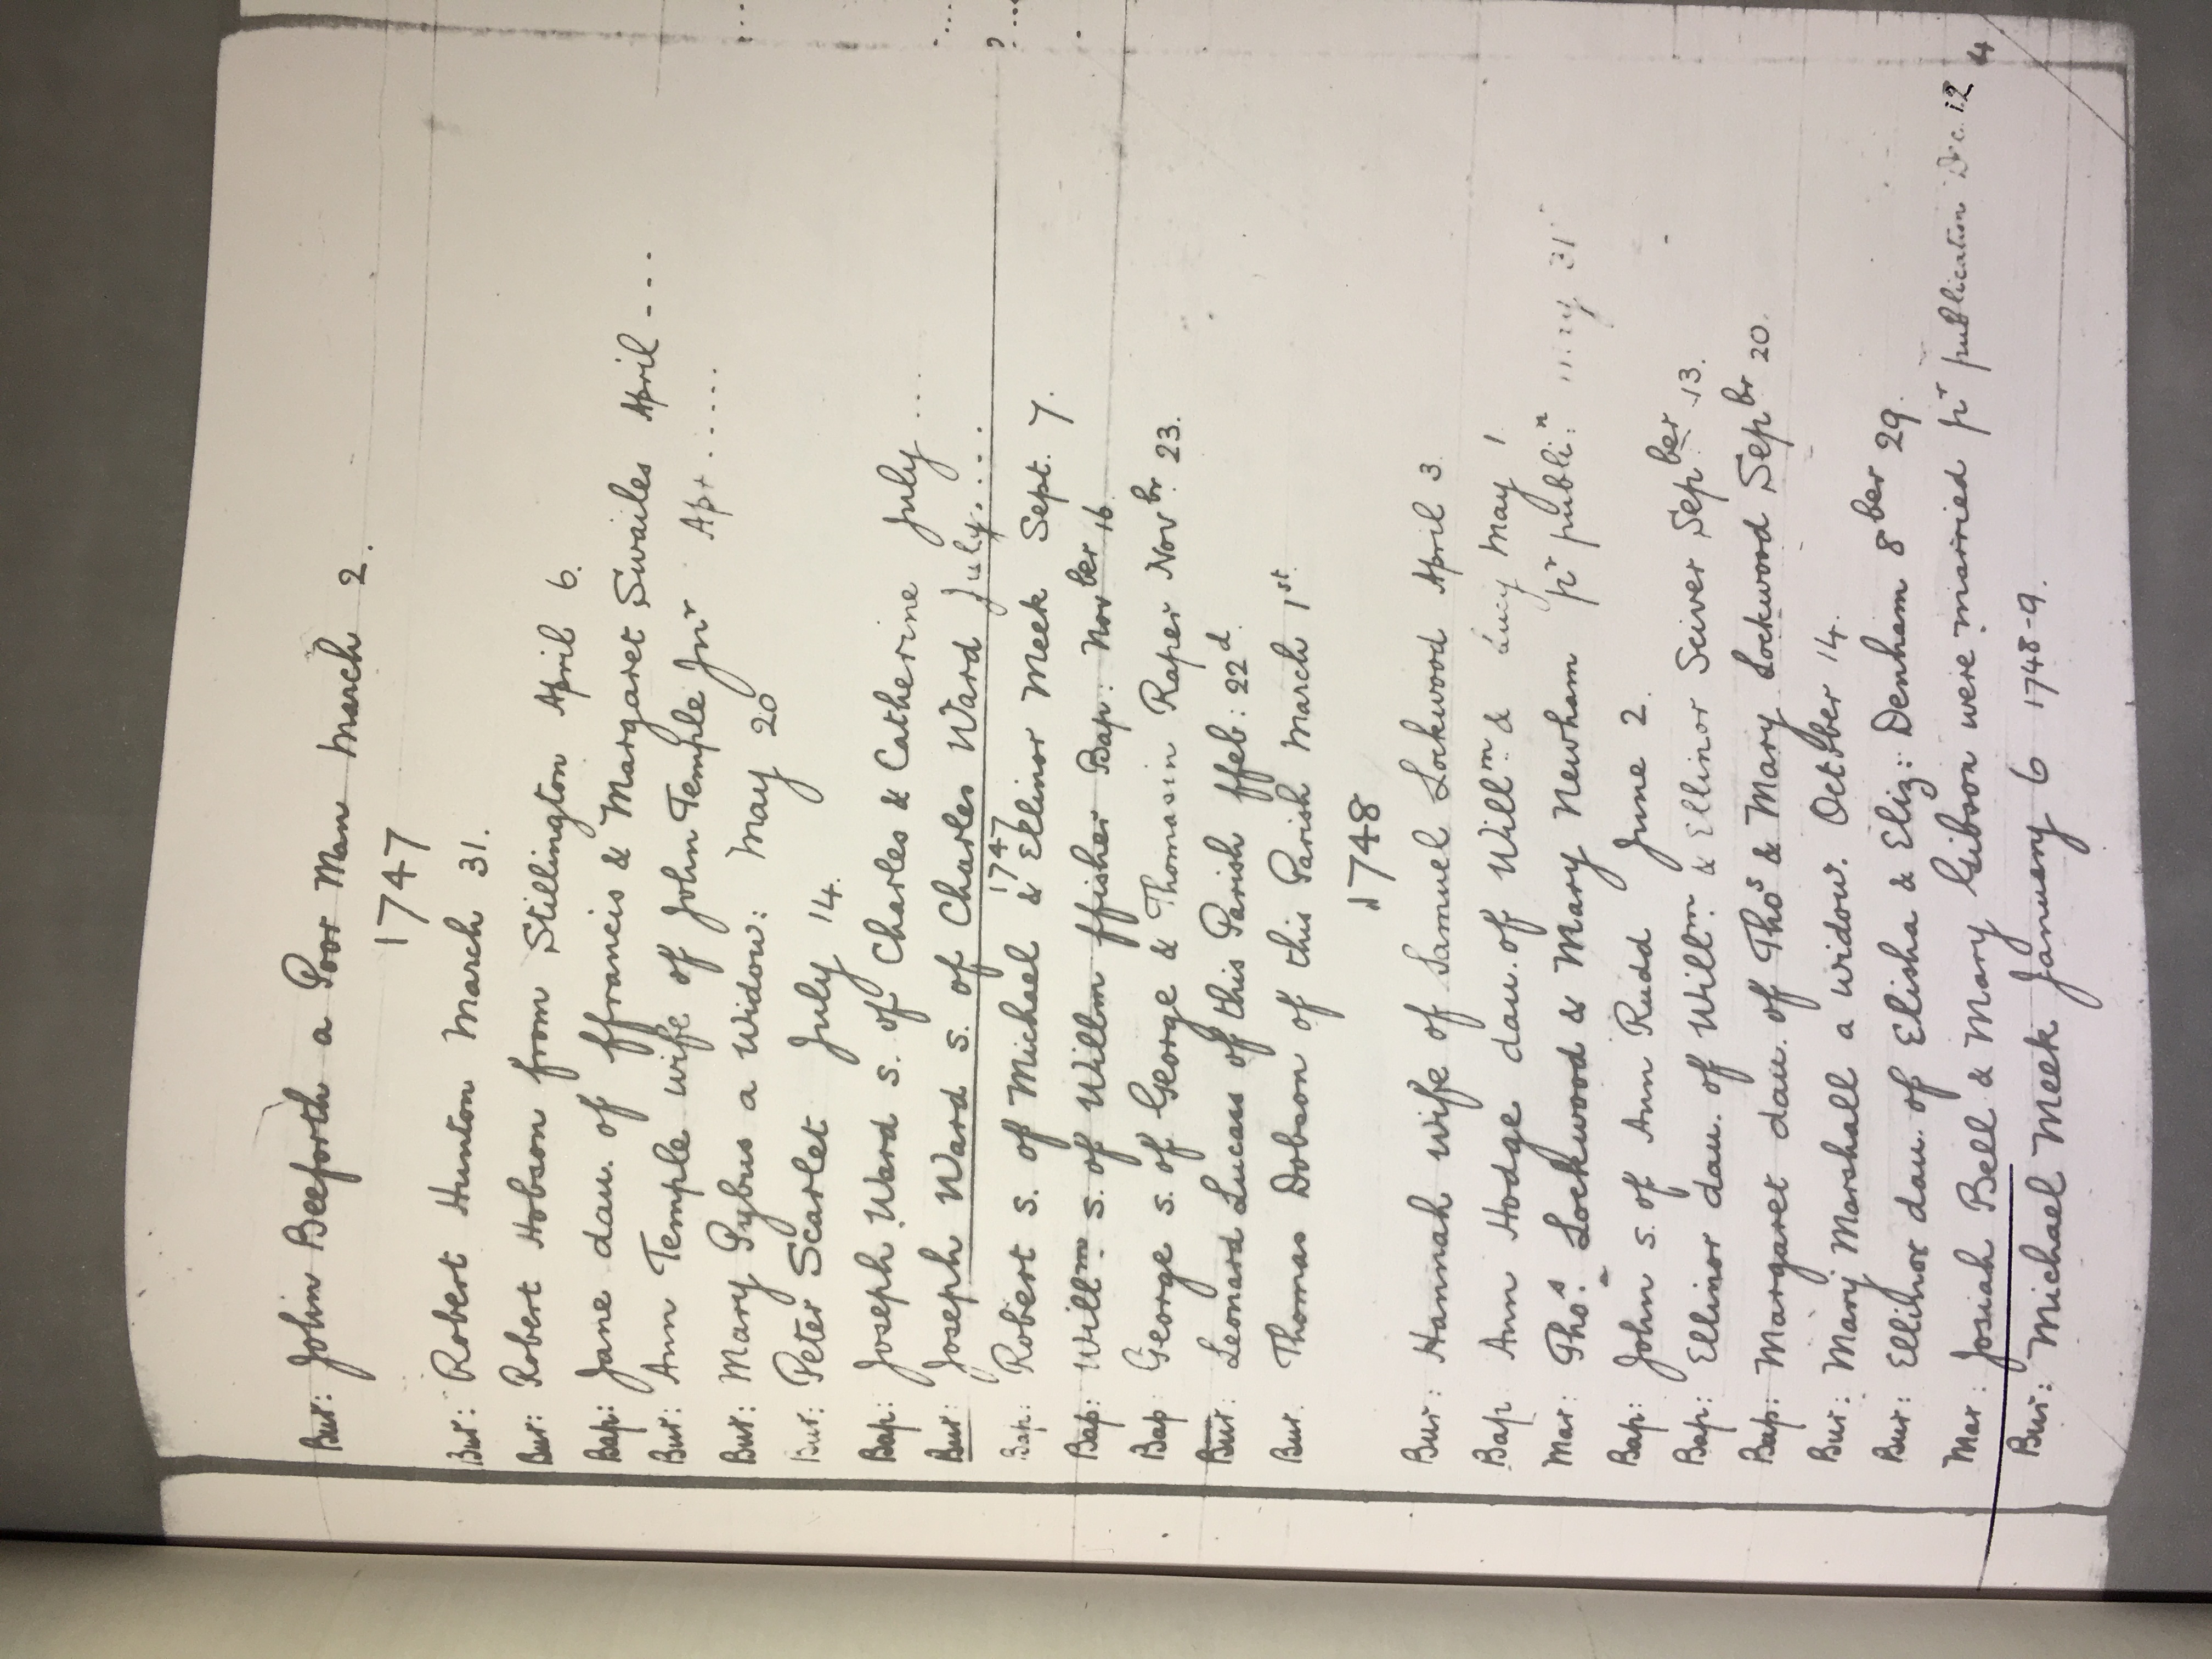 Bur: John Beeforth a Poor Man March 2.
1747
Bur: Robert Hunton March 31.
Bur: Robert Hobson from Stillington April 6.
Bap: Jane dau. of ffrancis & Margaret Swailes April - - -
Bur: Ann Temple wife of John Temple Jnr Ap.......
Bur: Mary Pybus a Widow: May 20
Bur: Peter Scarlet July 14.
Bap: Joseph Ward s. of Charles & Catherine July ...
Bur: Joseph Ward s. of Charles Ward July....
1747
Bap: Robert s. of Michael & Ellinor Meek Sept. 7.
Bap: Willm s. of Willm ffisher Bap: Novber 16
Bap George s. of George & Thomasin Raper Novbr 23.
Bur: Leonard Lucas of this Parish ffeb: 22d.
Bur. Thomas Dobson of this Parish March 1st.
1748
Bur: Hannah wife of Samuel Lockwood April 3.
Bap Ann Hodge dau. of Willm & Lucy May 1
Mar: Thos: Lockwood & Mary Newham pr publin: 31
Bap: John s. of Ann Rudd June 2.
Bap: Ellinor dau. of Willm: & Ellinor Sciver Sepber 13.
Bap: Margaret dau. of Thos & Mary Lockwood Sepbr 20.
Bur: Mary Marshall a widow. October 14.
Bur: Ellinor dau. of Elisha & Eliz: Denham 8ber 29.
Mar: Josiah Bell & Mary Gibson were married pr publication Dec. 12
Bur: Michael Meek January 6 1748-9.
4